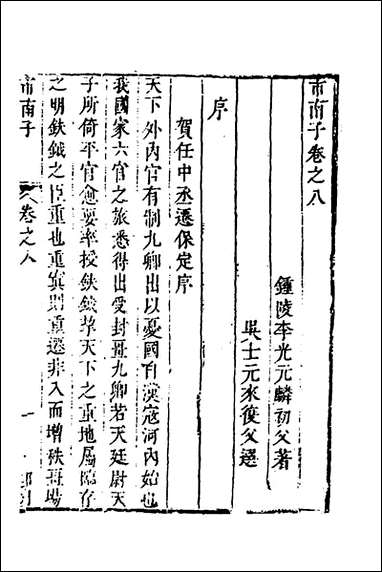 市南子卷之八
鍾陵李光元麟初父著
吳士元來復父選
序
賀任中丞遷保定序
天下外內官有制九卿出以憂國自漢寇河內始也
我國家六官之旅悉得出受封疆九卿若天廷尉天
子所倚平官愈要率授鈇鉞挈天下之重地屬臨存
之明鈇鉞之臣重也重寘則重遷非入而增秩疆場
市南子
卷之八
一